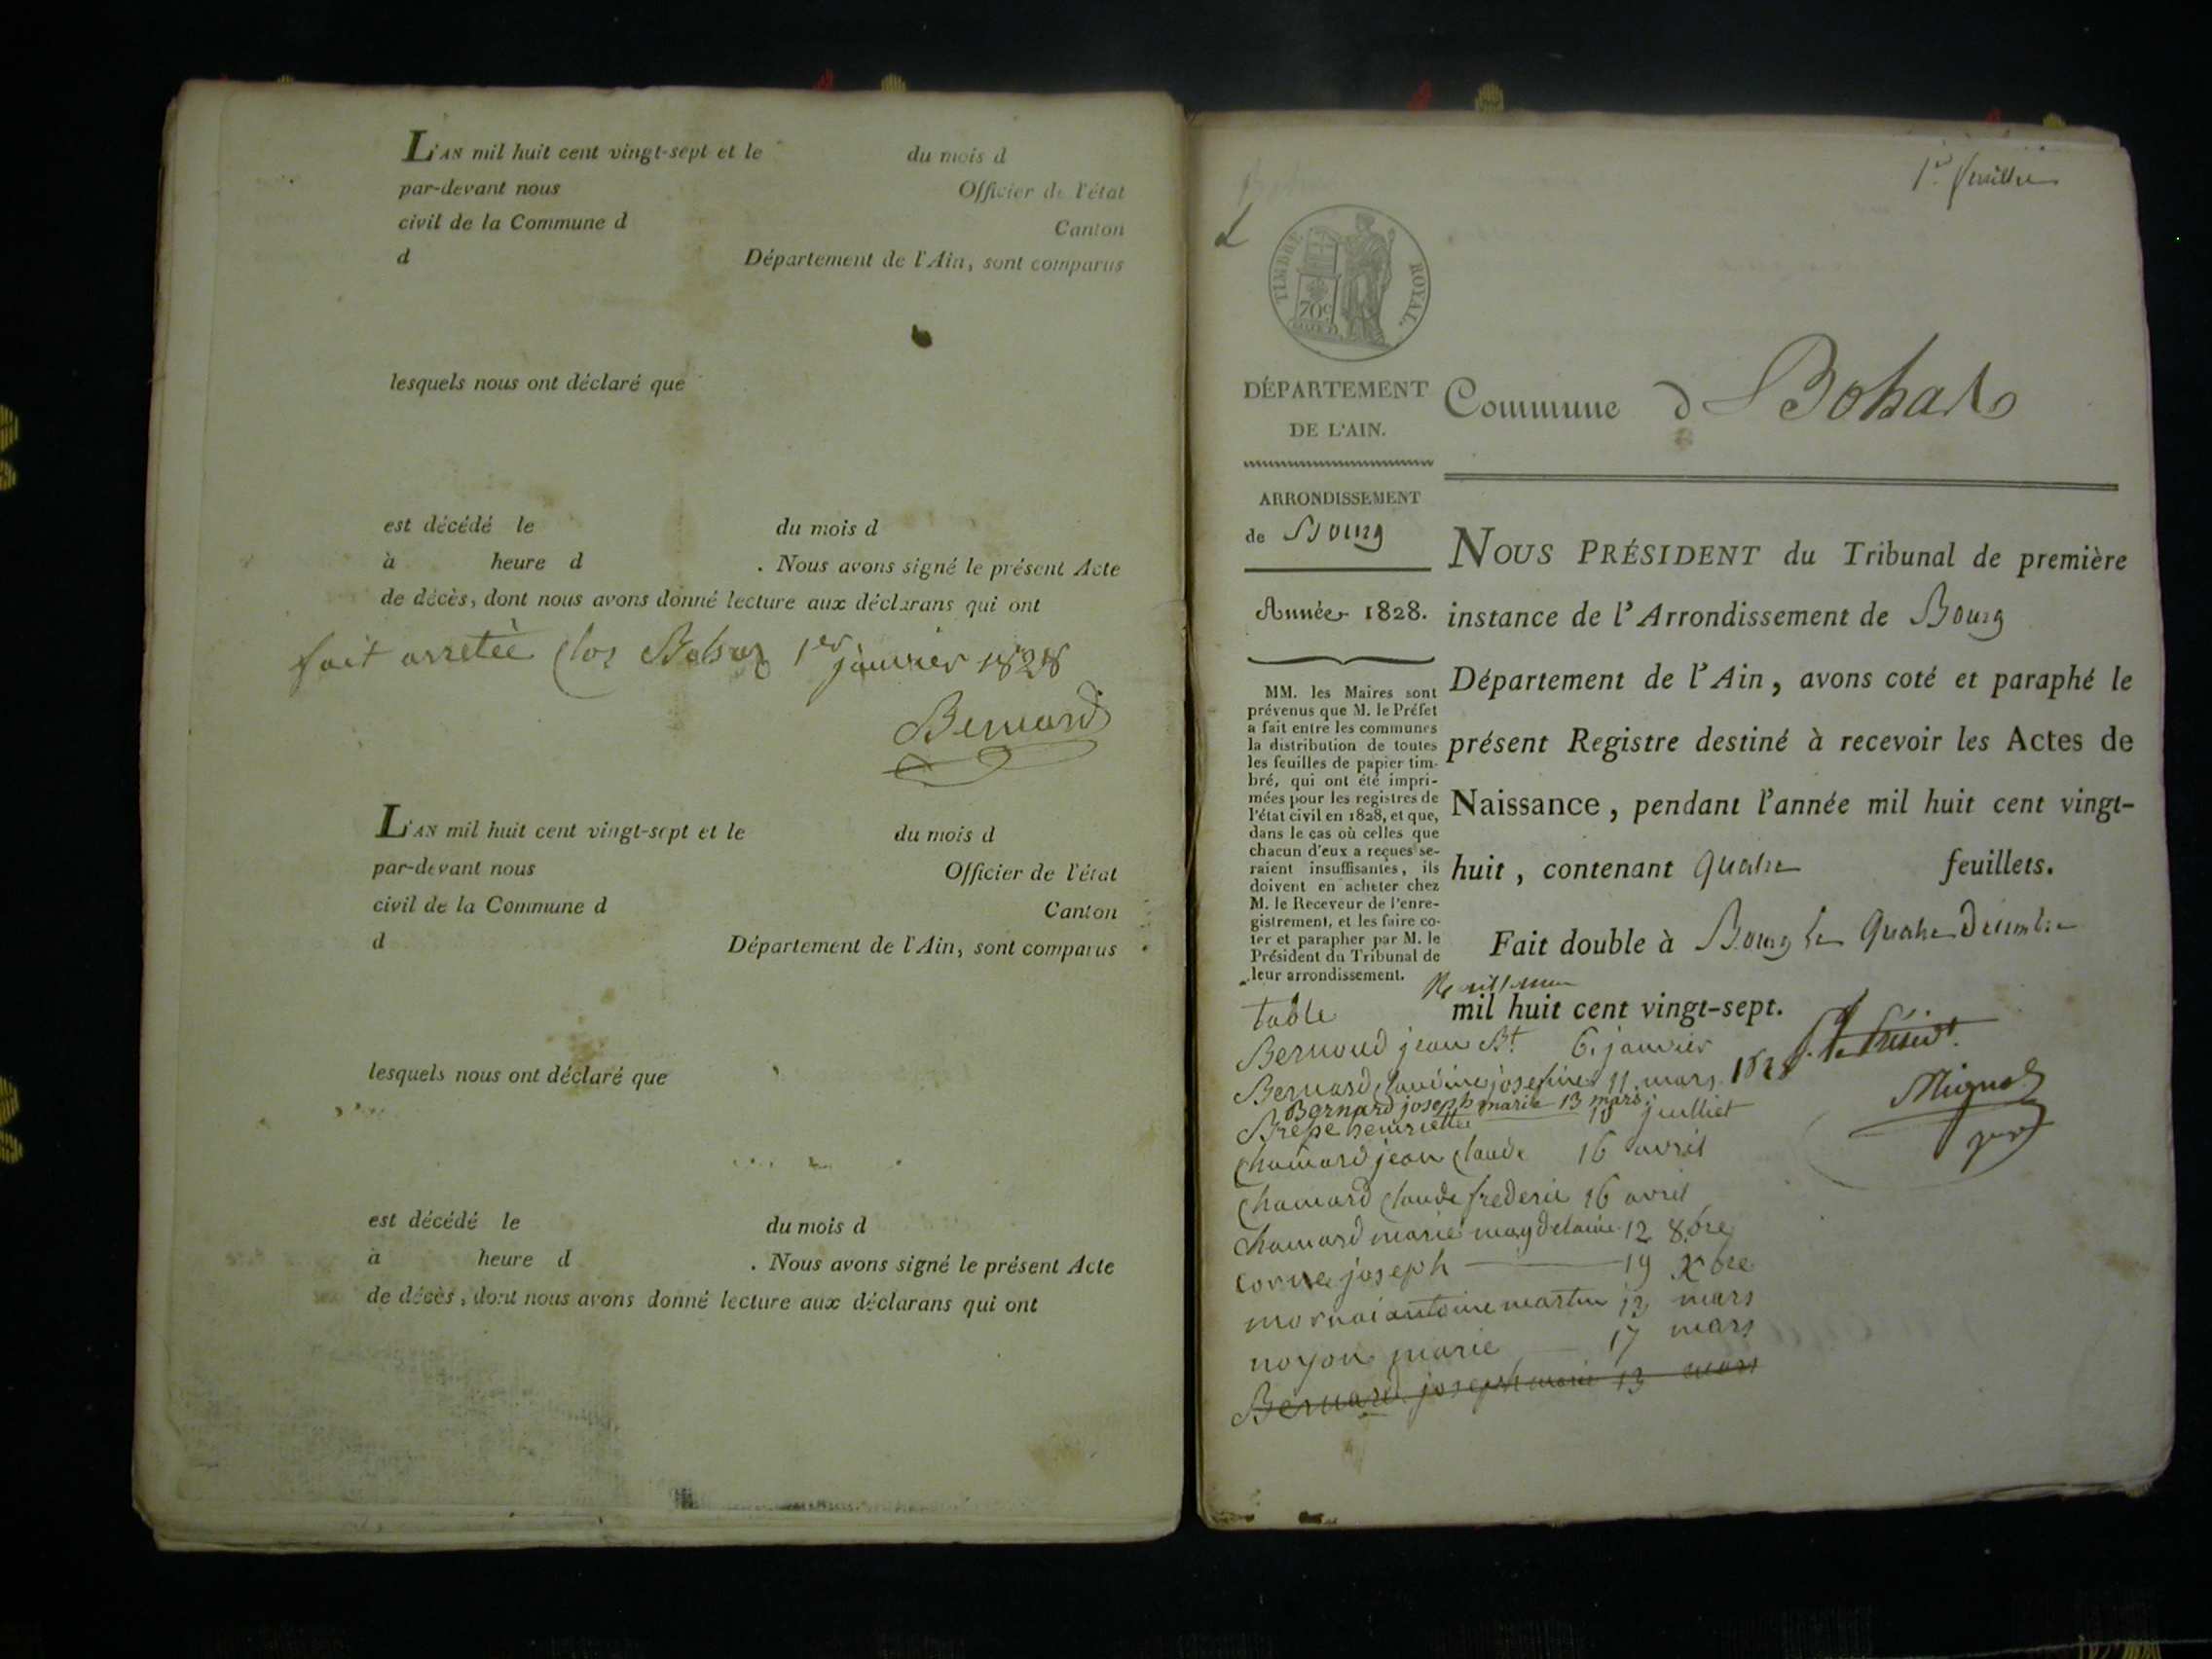 L'AN mil huit cent vingt-sept et le du mois d
par-devant nous Officier de l'état
civil de la Commune d Canton
d Département de l'Ain, sont comparus
lesquels nous ont déclaré que
est décédé le du mois d
à heure d . Nous avons signé le présent Acte
de décès, dont nous avons donné lecture aux déclarans qui ont
fait arretée clos Bohas 1er janvier 1828
Bernard
L'AN mil huit cent vingt-sept et le du mois d
par-devant nous Officier de l'état
civil de la Commune d Canton
d Département de l'Ain, sont comparus
lesquels nous ont déclaré que
est décédé le du mois d
à heure d . Nous avons signé le présent Acte
de décès, dont nous avons donné lecture aux déclarans qui ont
1er feuillet
TIMBRE ROYAL.
70c
DÉPARTEMENT
DE L'AIN.
Commune d Bohas
ARRONDISSEMENT
de Bourg
Année 1828.
MM. les Maires sont
prévenus que M. le Préfet
a fait entre les communes
la distribution de toutes
les feuilles de papier tim-
bré, qui ont été impri-
mées pour les registres de
l'état civil en 1828, et que,
dans le cas où celles que
chacun d'eux a reçues se-
raient insuffisantes, ils
doivent en acheter chez
M. le Receveur de l'enre-
gistrement, et les faire co-
ter et parapher par M. le
Président du Tribunal de
leur arrondissement.
NOUS PRÉSIDENT du Tribunal de première
instance de l'Arrondissement de Bourg
Département de l'Ain, avons coté et paraphé le
présent Registre destiné à recevoir les Actes de
Naissance, pendant l'année mil huit cent vingt-
huit, contenant quatre feuillets.
Fait double à Bourg le quatre Décembre
mil huit cent vingt-sept.
Le Présidt.
table
Bernoud jean Bt 6 janvier
Bernard claudine josefine 11 mars 1828
Bernard joseph marie 13 mars
henriette 10 juilliet
chamard jean claude 16 avril
chamard claude frederic 16 avril
chamard marie magdelaine 12 8bre
cornu joseph 19 Xbre
mornai antoine martin 13 mars
noyon marie 17 mars
Bernard joseph marie 13 mars